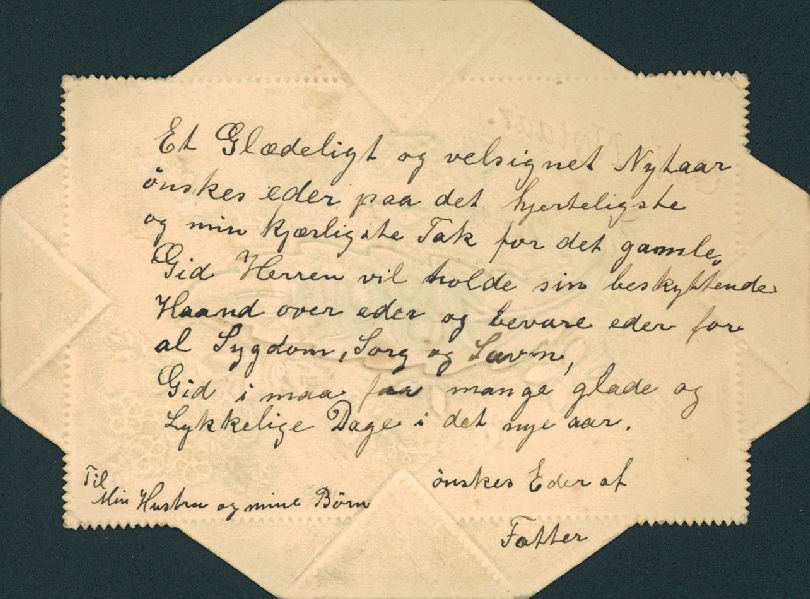 Et Glædeligt og velsignet Nytaar
ønskes eder paa det hjerteligste
og min kjærligste Tak for det gamle,
Gid Herren vil holde sin beskyttende
Haand over eder og bevare eder for
al Sygdom, Sorg og Savn,
Gid i maa faa mange glade og
Lykkelige Dage i det nye aar.
ønskes Eder af
Fatter
Til
Min Hustru og mine Börn